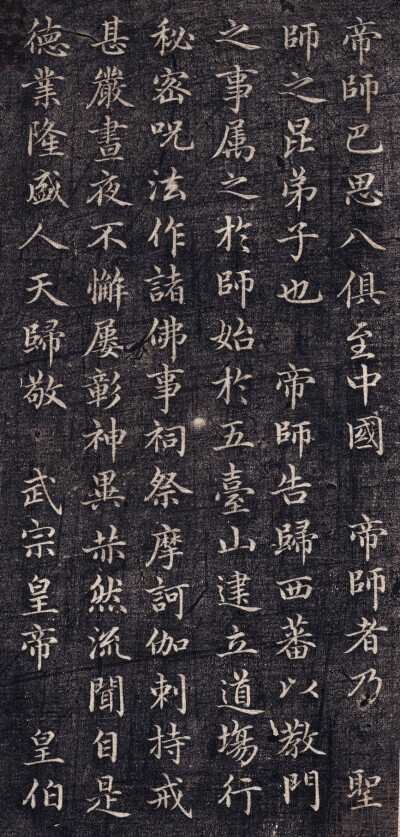 帝師巴思八俱至中國　帝師者乃　聖
師之昆弟子也　帝師告歸西蕃以教門
之事属之於師始於五臺山建立道塲行
秘密呪法作諸佛事祠祭摩訶伽剌持戒
甚嚴晝夜不懈屢彰神異赫然流聞自是
德業隆盛人天歸敬　武宗皇帝　皇伯